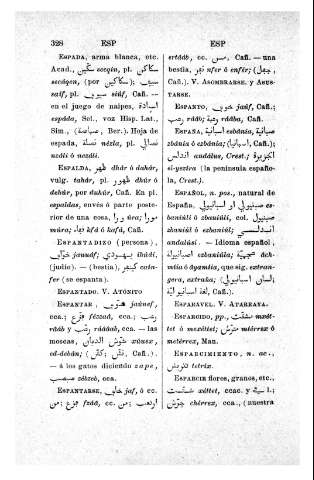 328 ESP ESP
ESPADA, arma blanca, etc.
Acad., سكّين secqín, pl. سكاكن
secáqen, (por سكاكين); سيف
saif, pl. سيوف siúf, Cañ. —
en el juego de naipes, اسبادة
espáda, Scl., voz Hisp. Lat.,
Sim., (صباصة, Ber.). Hoja de
espada, نصلة nézla, pl. نصال
nezlí ó nezáli.
ESPALDA, ظهر dhár ó duhár,
vulg. tahár, pl. ظهور dhúr ó
dehúr, por duhúr, Cañ. En pl.
espaldas, envés ó parte poste-
rior de una cosa, ورا úra; مورا
múra; قفا kfá ó kafá, Cañ.
ESPANTADIZO (persona),
جوايف يهودي jauáf ihúdi,
(judío). — (bestia), كينفر quinfer
(se espanta).
ESPANTADO. V. ATÓNITO
ESPANTAR, خوّف jáunef,
cca.; فزّع fézzaâ, cca.; رعب
ráâb y رعّب ráâaab, cca. — las
moscas, حوّش الدبان xúuex,
ed-debán; (كش, نش, Cañ.).
— á los gatos diciendo zape,
صبصب sébseb, cca.
ESPANTARSE, خاف jaf, ó cc.
من; فزع fzaâ, cc. من; ارتعب
ertáâb, cc. من, Cañ. — una
bestia, نفر nfer ó enfér; (جفل,
Cañ.). V. ASOMBRARSE. y ASUS-
TARSE.
ESPANTO, خوف jaúf, Cañ.;
رعب ráâb; رعبة raâba, Cañ.
ESPAÑA, اسبانية esbánia, صبانية
zbánia ó ezbánia; (اسبانيا, Cañ.);
اندلس andálus, Crest.; الجزيرة
el-yezíra (la península españo-
la, Crest.).
ESPAÑOL, n. pos., natural de
España, اسبانيولي او صبانيولي es-
baniúli ó zbaniúli, col. صبنيول
zbaniúl ó ezbaniúl; اندلسي
andalúsi. — Idioma español,
صبانيولية zbaniulía; عجمية âch-
mía ó âyamía, que sig. extran-
gera, extraña; (لسان اسبانيولي,
لغة اسبانيولية, Cañ.).
ESPARAVEL. V. ATARRAYA.
ESPARCIDO, pp., مشتّت mxét-
tet ó mexéttet; مترّز mtérrez ó
metérrez, Man.
ESPARCIMIENTO, n. ac.,
تتريز tetríz.
ESPARCIR flores, granos, etc.,
شتّت xéttet, ccac. y على;
حرّش chérrex, cca., (nuestra